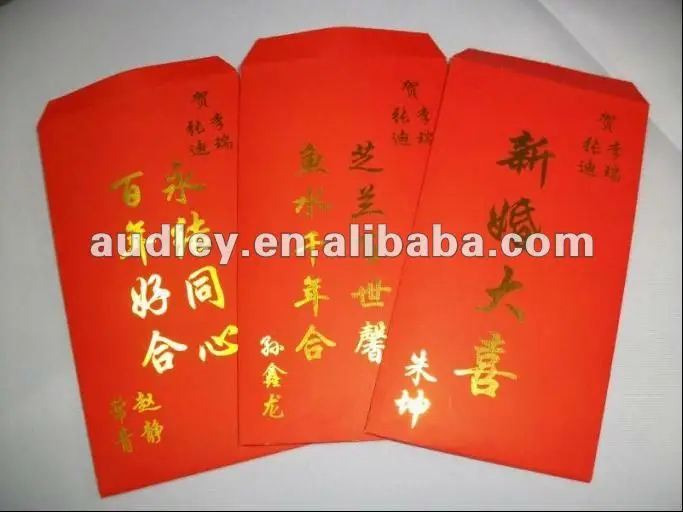 贺
李瑞
张迪
永结同心
百年好合
赵静
贺
李瑞
张迪
芝兰世馨
鱼水千年合
孙鑫龙
贺
李瑞
张迪
新婚大喜
朱坤
audley.en.alibaba.com